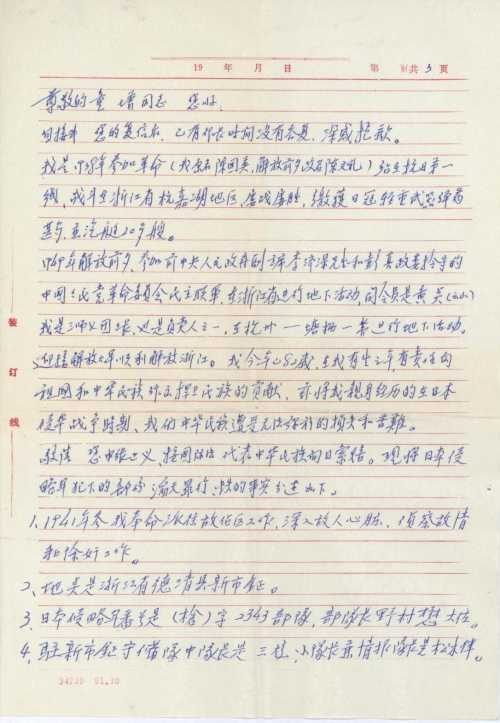 19 年 月 日 第 页共 3 页
尊敬的童 增同志 您好,
自接来 您的复信后,已有很长时间没有答复,深感抱歉。
我是1938年参加革命(我原名陈国英,解放前夕改名陈文礼)站在抗日第一
线,战斗在浙江省杭嘉湖地区,屡战屡胜,缴获日冠轻重武器弹药
无数,及汽艇20多艘。
1949年解放前夕,参加前中央人民政府副主席李济深先生和彭真政委指令的
中国国民党革命委员会民主联军,在浙江省进行地下活动,司令员是黄吴(山)
我是三师义团 ,也是负责人之一,在杭州一塘栖一带进行地下活动。
迎接解放大军顺利解放浙江。我今年七八岁,在我有生之年有责任为
祖国和中华民族作出炎黄民族的贡献,亦将我亲身经历的在日本
侵华战争时期,我们中华民族遭受无法弥补的损失和苦难。
敬请 您申张正义,按国际法代表中华民族向日索结。现将日本侵
略军犯下的部分滔天罪行,铁的事实引述如下。
1、1941年冬我奉命派住敌佔区工作,深入敌人心脏,侦察敌情
和除奸工作。
2、地点是浙江省德清县新市镇。
3、日本侵略军番号是(枪)字2343部隊,部隊长野村 大佐。
4、驻新市镇守備隊中隊长是三枝,小隊长兼情报隊长是松木 。
装
订
线
94739 91.10